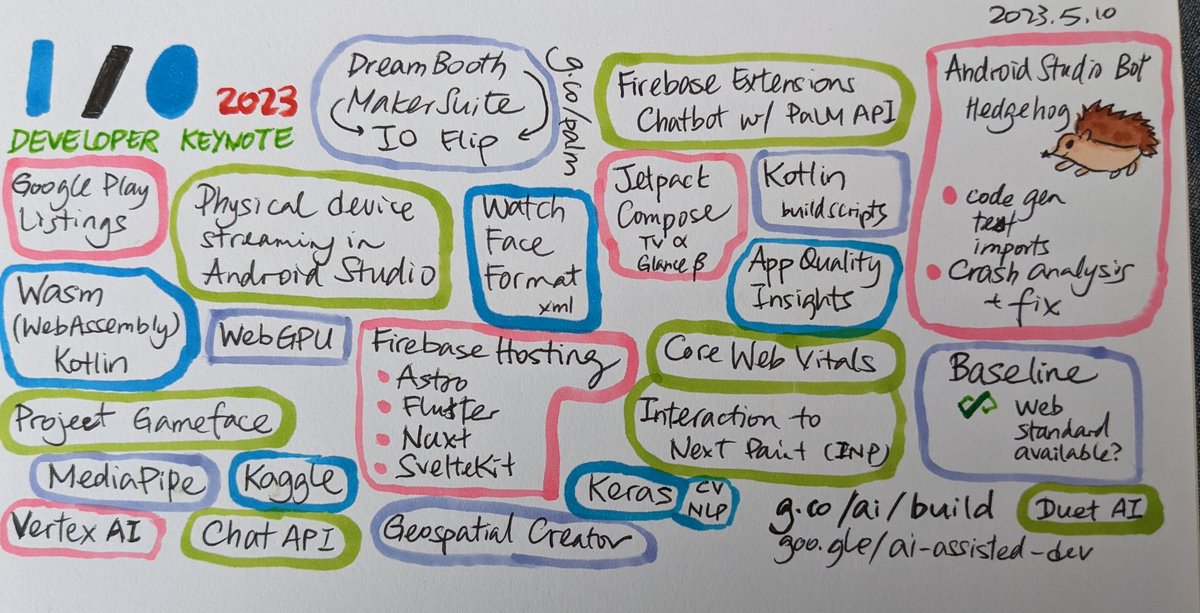 2023.5.10
I/O 2023
DEVELOPER KEYNOTE
DreamBooth
MakerSuite
IO Flip
g.co/palm
Firebase Extensions
Chatbot w/ PaLM API
Android Studio Bot
Hedgehog
code gen
test
imports
Crash analysis
+ fix
Google Play
Listings
Physical device
streaming in
Android Studio
Watch
Face
Format
xml
Jetpack
Compose
TV α
Glance β
Kotlin
buildscripts
App Quality
Insights
Wasm
(WebAssembly)
Kotlin
WebGPU
Firebase Hosting
Astro
Flutter
Nuxt
SvelteKit
Core Web Vitals
Interaction to
Next Paint (INP)
Baseline
Web
standard
available?
Project Gameface
MediaPipe
Kaggle
Keras
CV
NLP
Vertex AI
Chat API
Geospatial Creator
g.co/ai/build
goo.gle/ai-assisted-dev
Duet AI